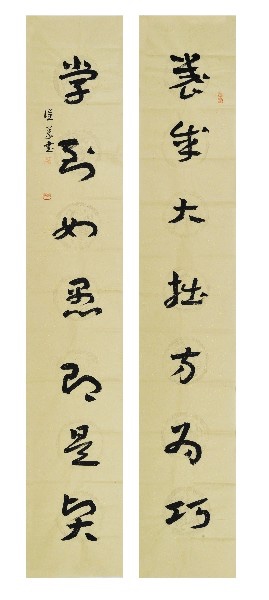 养成大拙方为巧
学到如愚即是贤